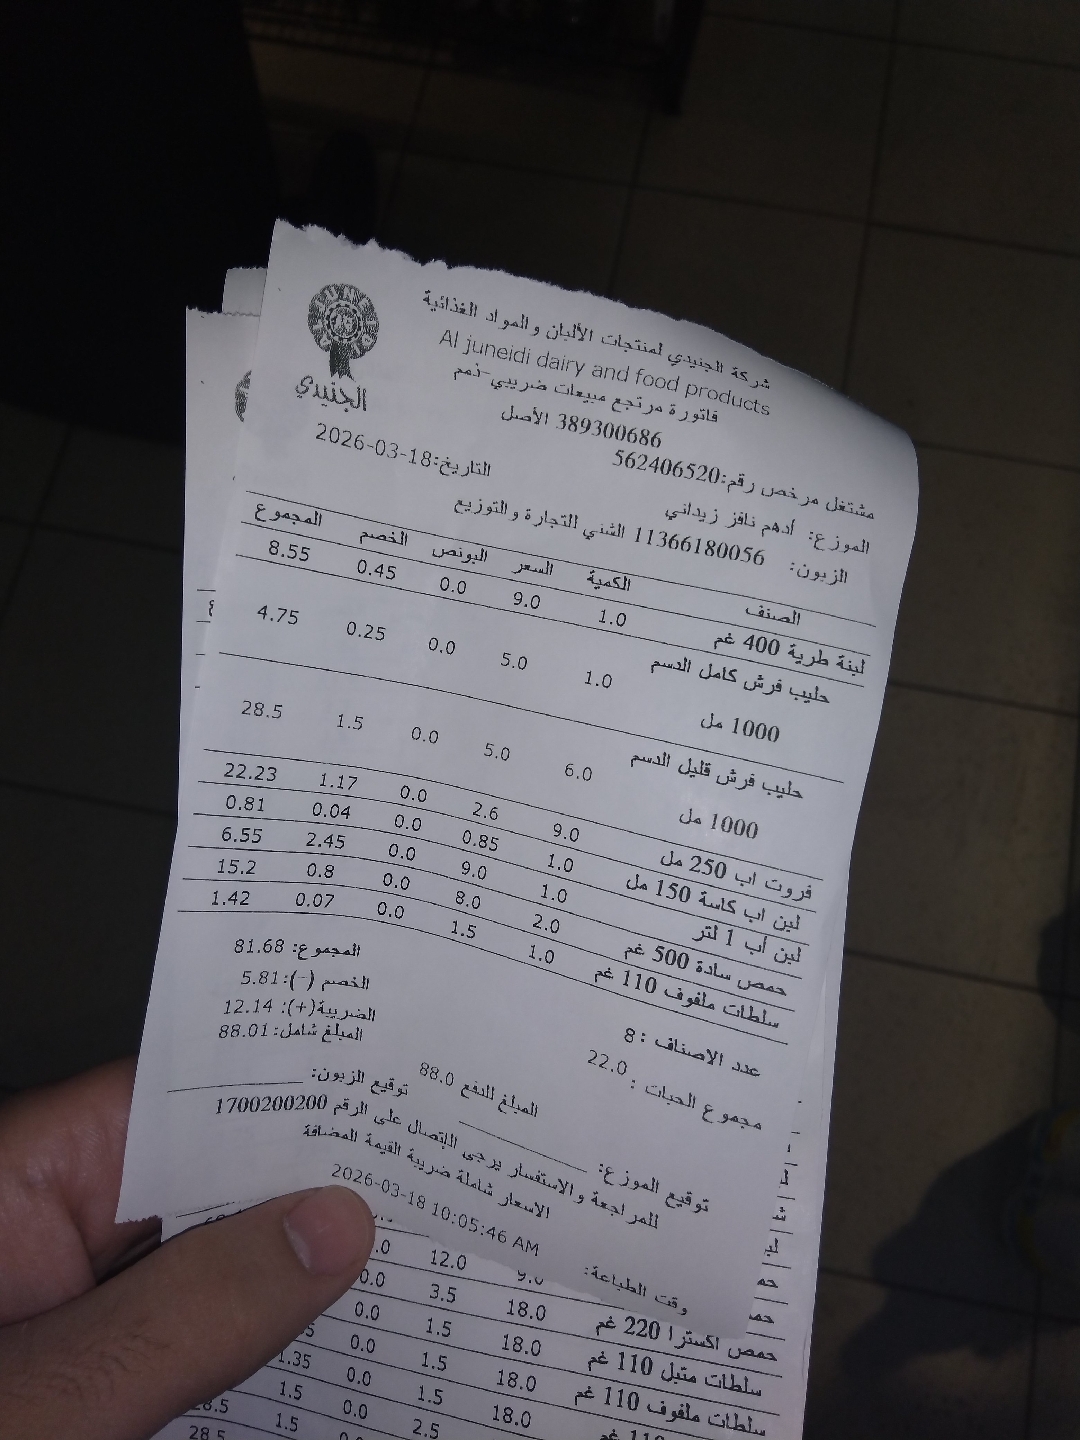 الجنيدي
شركة الجنيدي لمنتجات الألبان والمواد الغذائية
Al juneidi dairy and food products
فاتورة مرتجع مبيعات ضريبي-ذمم
389300686 الأصل
مشتغل مرخص رقم:562406520
التاريخ:2026-03-18
الموزع: أدهم نافز زيداني
الزبون: 11366180056 الشني للتجارة والتوزيع
الصنف الكمية السعر البونص الخصم المجموع
لبنة طرية 400 غم 1.0 9.0 0.0 0.45 8.55
حليب فرش كامل الدسم 1000 مل 1.0 5.0 0.0 0.25 4.75
حليب فرش قليل الدسم 1000 مل 6.0 5.0 0.0 1.5 28.5
فروت اب 250 مل 9.0 2.6 0.0 1.17 22.23
لبن اب كاسة 150 مل 1.0 0.85 0.0 0.04 0.81
لبن أب 1 لتر 1.0 9.0 0.0 2.45 6.55
حمص سادة 500 غم 2.0 8.0 0.0 0.8 15.2
سلطات ملفوف 110 غم 1.0 1.5 0.0 0.07 1.42
المجموع: 81.68
الخصم (-):5.81
الضريبة(+): 12.14
المبلغ شامل: 88.01
عدد الاصناف : 8
مجموع الحبات : 22.0
المبلغ للدفع 88.0
توقيع الزبون:
توقيع الموزع:
للمراجعة والاستفسار يرجى الإتصال على الرقم 1700200200
الاسعار شاملة ضريبة القيمة المضافة
وقت الطباعة: 2026-03-18 10:05:46 AM
12.0
حمص اكسترا 220 غم 18.0 3.5 0.0
سلطات متبل 110 غم 18.0 1.5 0.0
سلطات ملفوف 110 غم 18.0 1.5 0.0 1.35
18.0 1.5 0.0 1.5
2.5 1.5 28.5